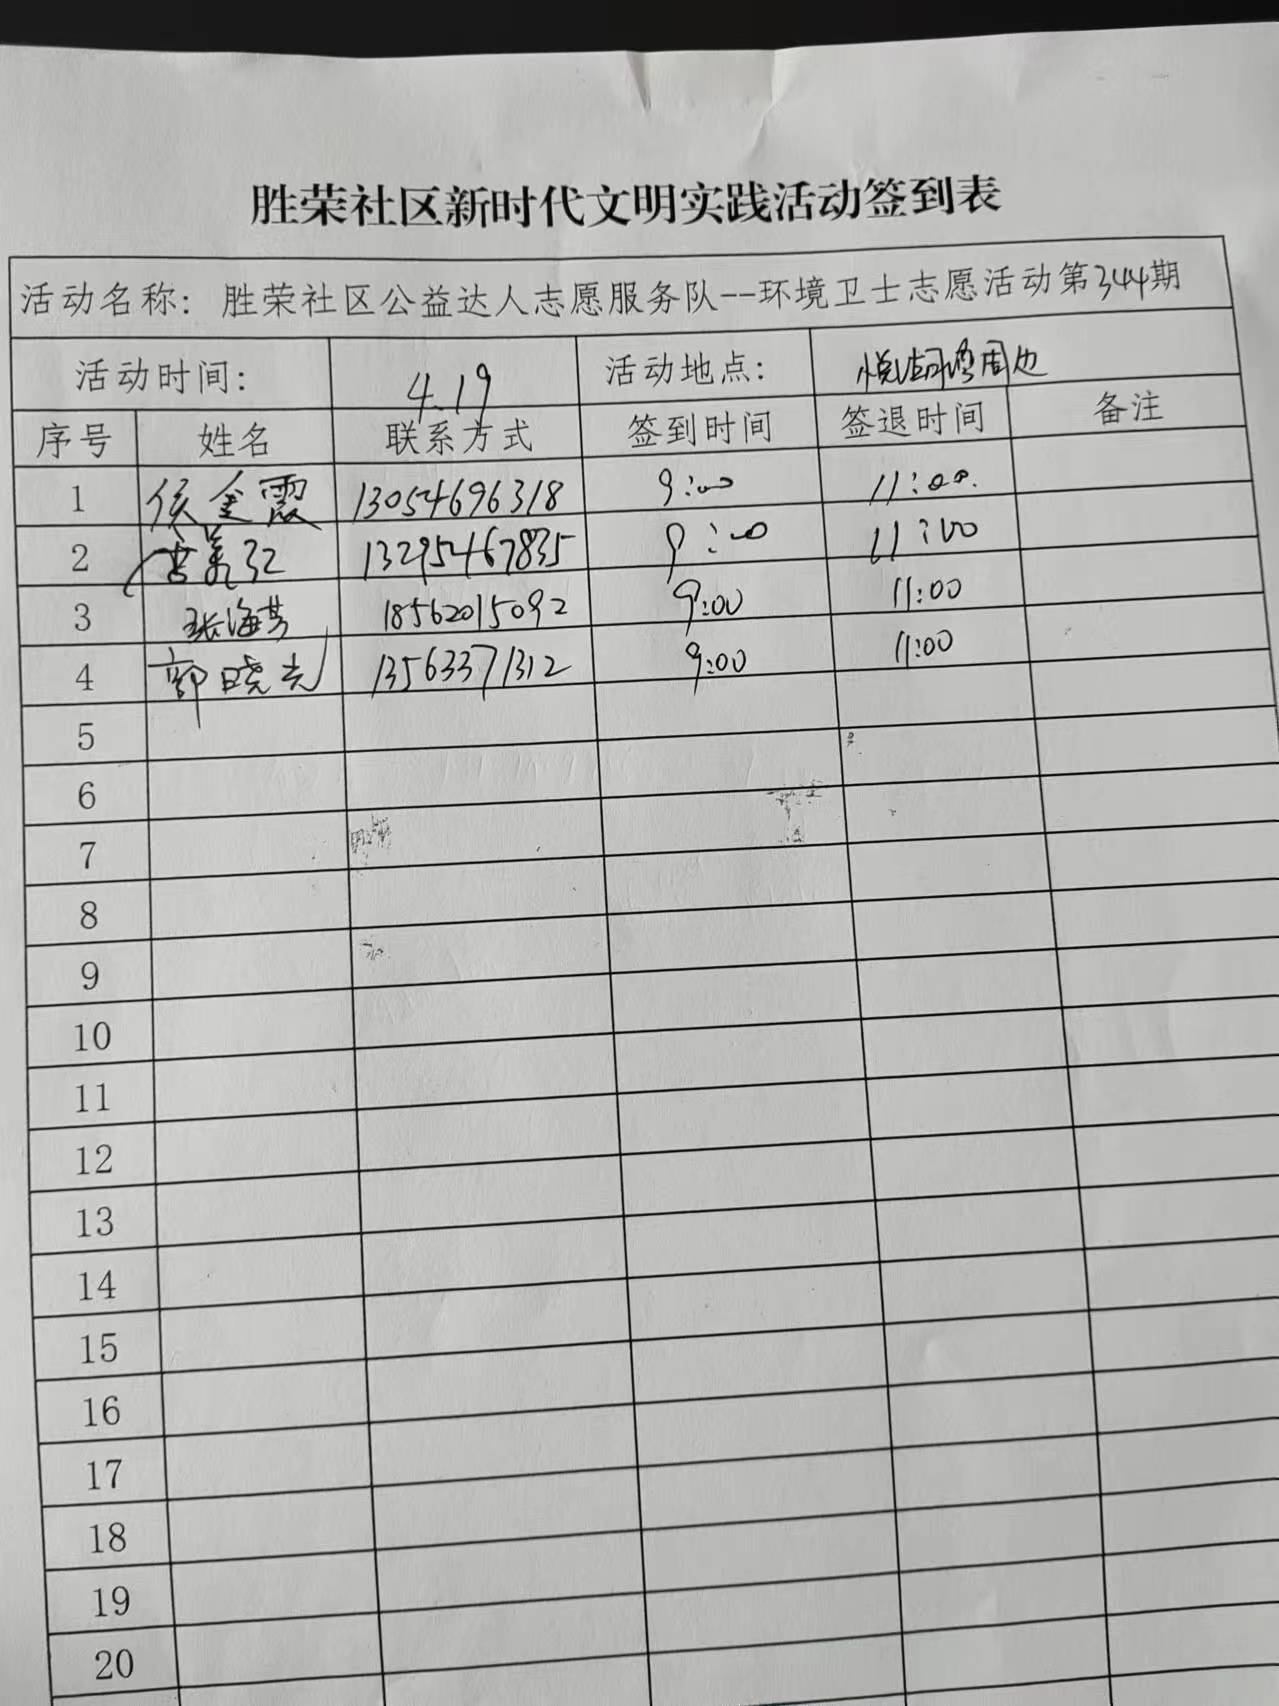 胜荣社区新时代文明实践活动签到表
活动名称：胜荣社区公益达人志愿服务队--环境卫士志愿活动第344期
活动时间： 4.19 活动地点： 悦湖湾周边
序号 姓名 联系方式 签到时间 签退时间 备注
1 侯金霞 13054696318 9:00 11:00.
2 13295467835 9:00 11:00
3 张海芳 18562015092 9:00 11:00
4 郭晓光 13563371312 9:00 11:00
5
6
7
8
9
10
11
12
13
14
15
16
17
18
19
20